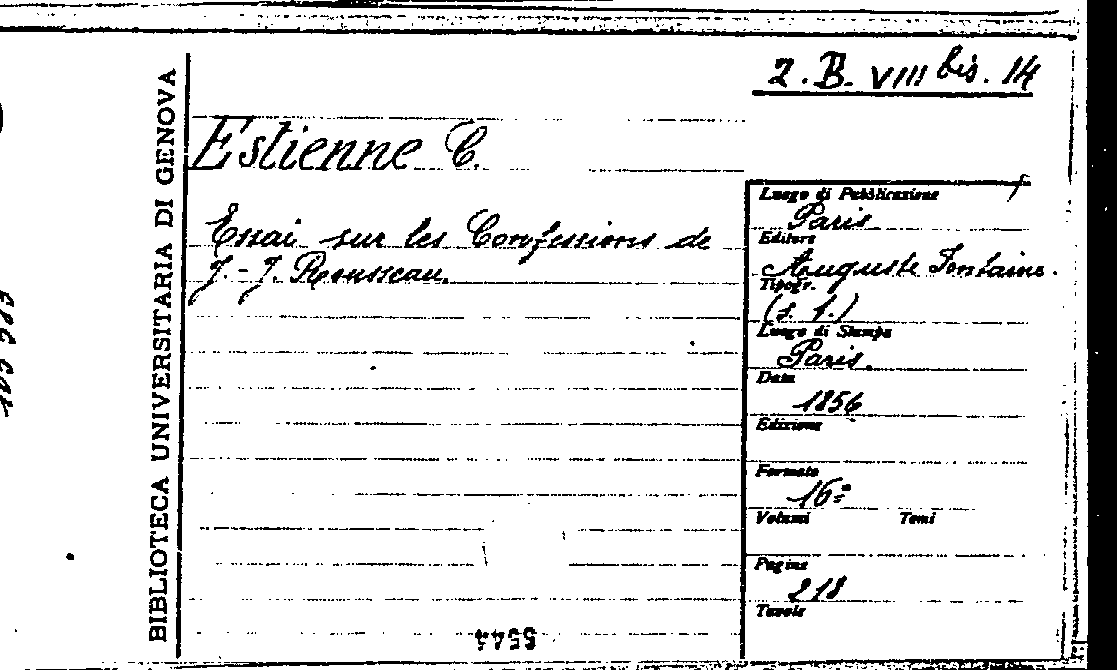 2. B. VIII bis. 14
BIBLIOTECA UNIVERSITARIA DI GENOVA
Estienne C.
Essai sur les Confessions de
J.-J. Rousseau.
Luogo di Pubblicazione
Paris
Editore
Auguste Fontaine.
Tipogr.
(s. t.)
Luogo di Stampa
Paris.
Data
1856
Edizione
Formato
16º
Volumi Tomi
Pagine
218
Tavole
5544